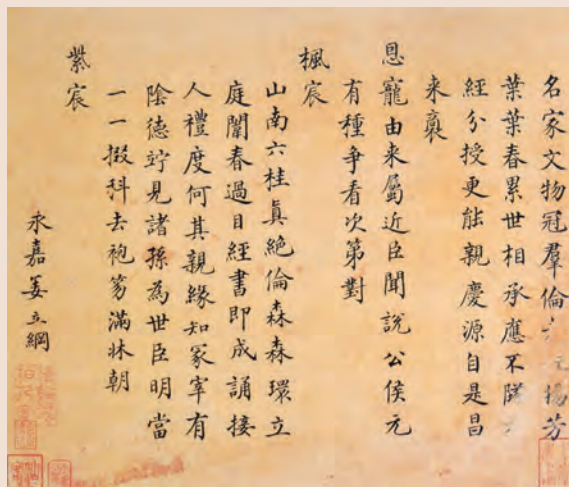 名家文物冠羣倫揚芳
葉葉春累世相承應不隊
經分授更能親慶源自是昌
来裔
恩寵由来屬近臣聞說公侯元
有種爭看次第對
楓宸
山南六桂眞絕倫森森環立
庭闈春過目經書即成誦接
人禮度何其親緣知冢宰有
陰德竚見諸孫為世臣明當
一一掇科去袍笏滿牀朝
紫宸
永嘉姜立綱